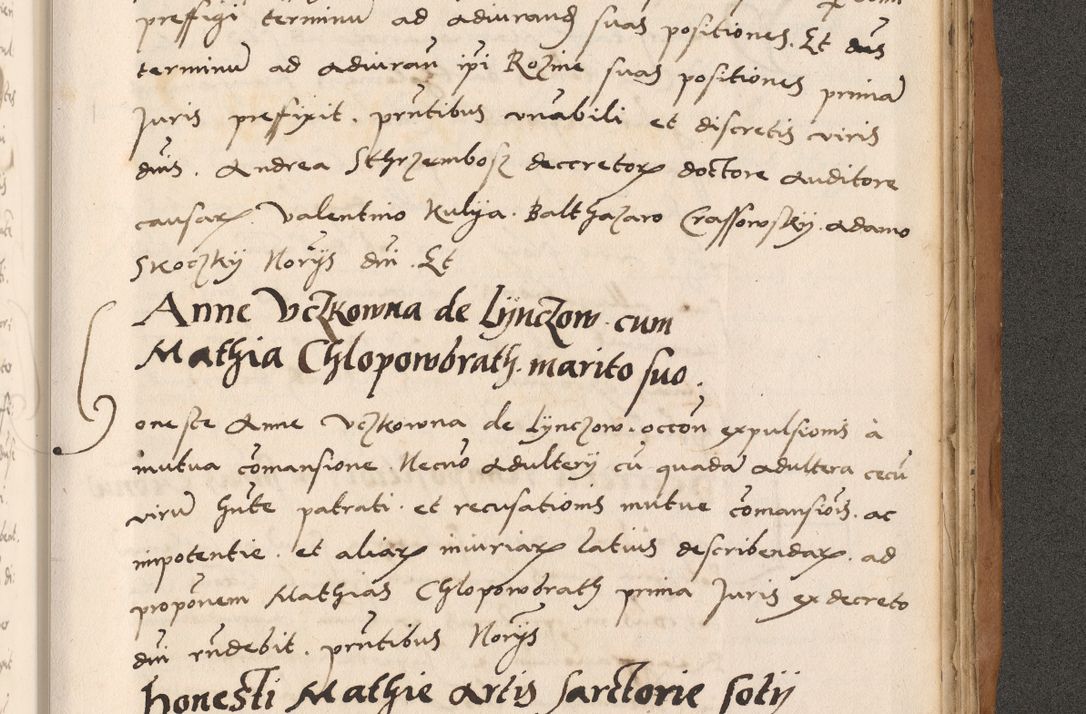 preffigi terminũ ad adiurand suas positiones. Et dns
terminũ ad adiuran ipi Rozine suas positiones prima
Juris preffixit. pntibus vnabili et discretis viris
dnis. Andrea Sthrzembosz decretor doctore auditore
causar Valentino Kulya. Balthazaro Crassowsky. adamo
Skoczky Norys dni. Et
Anne Vczkowna de Lynczow. cum
Mathia Chlopowbrath. marito suo.
oneste Anne Vczkowna de Lynczow. occõn expulsionis à
mutua cõmansione. Necno adultery cũ quadã adultera cecũ
virũ hnte patrati. et recusationis mutue cõmansiõis. ac
impotentie. et aliar iniuriar latius describendar. ad
propõnem Mathias Chlopowbrath prima Juris ex decreto
dni rndebit. pntibus Norys
honesti Mathie artis sarctorie sotij